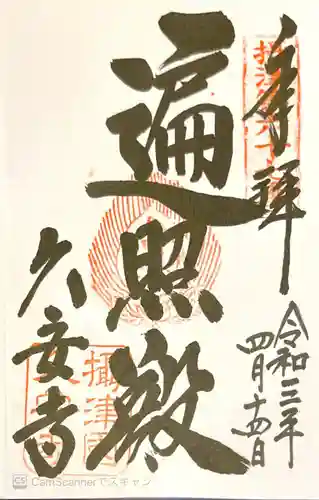 奉拝
令和三年
四月十四日
遍照殿
久安寺
摂津国
CamScannerでスキャン